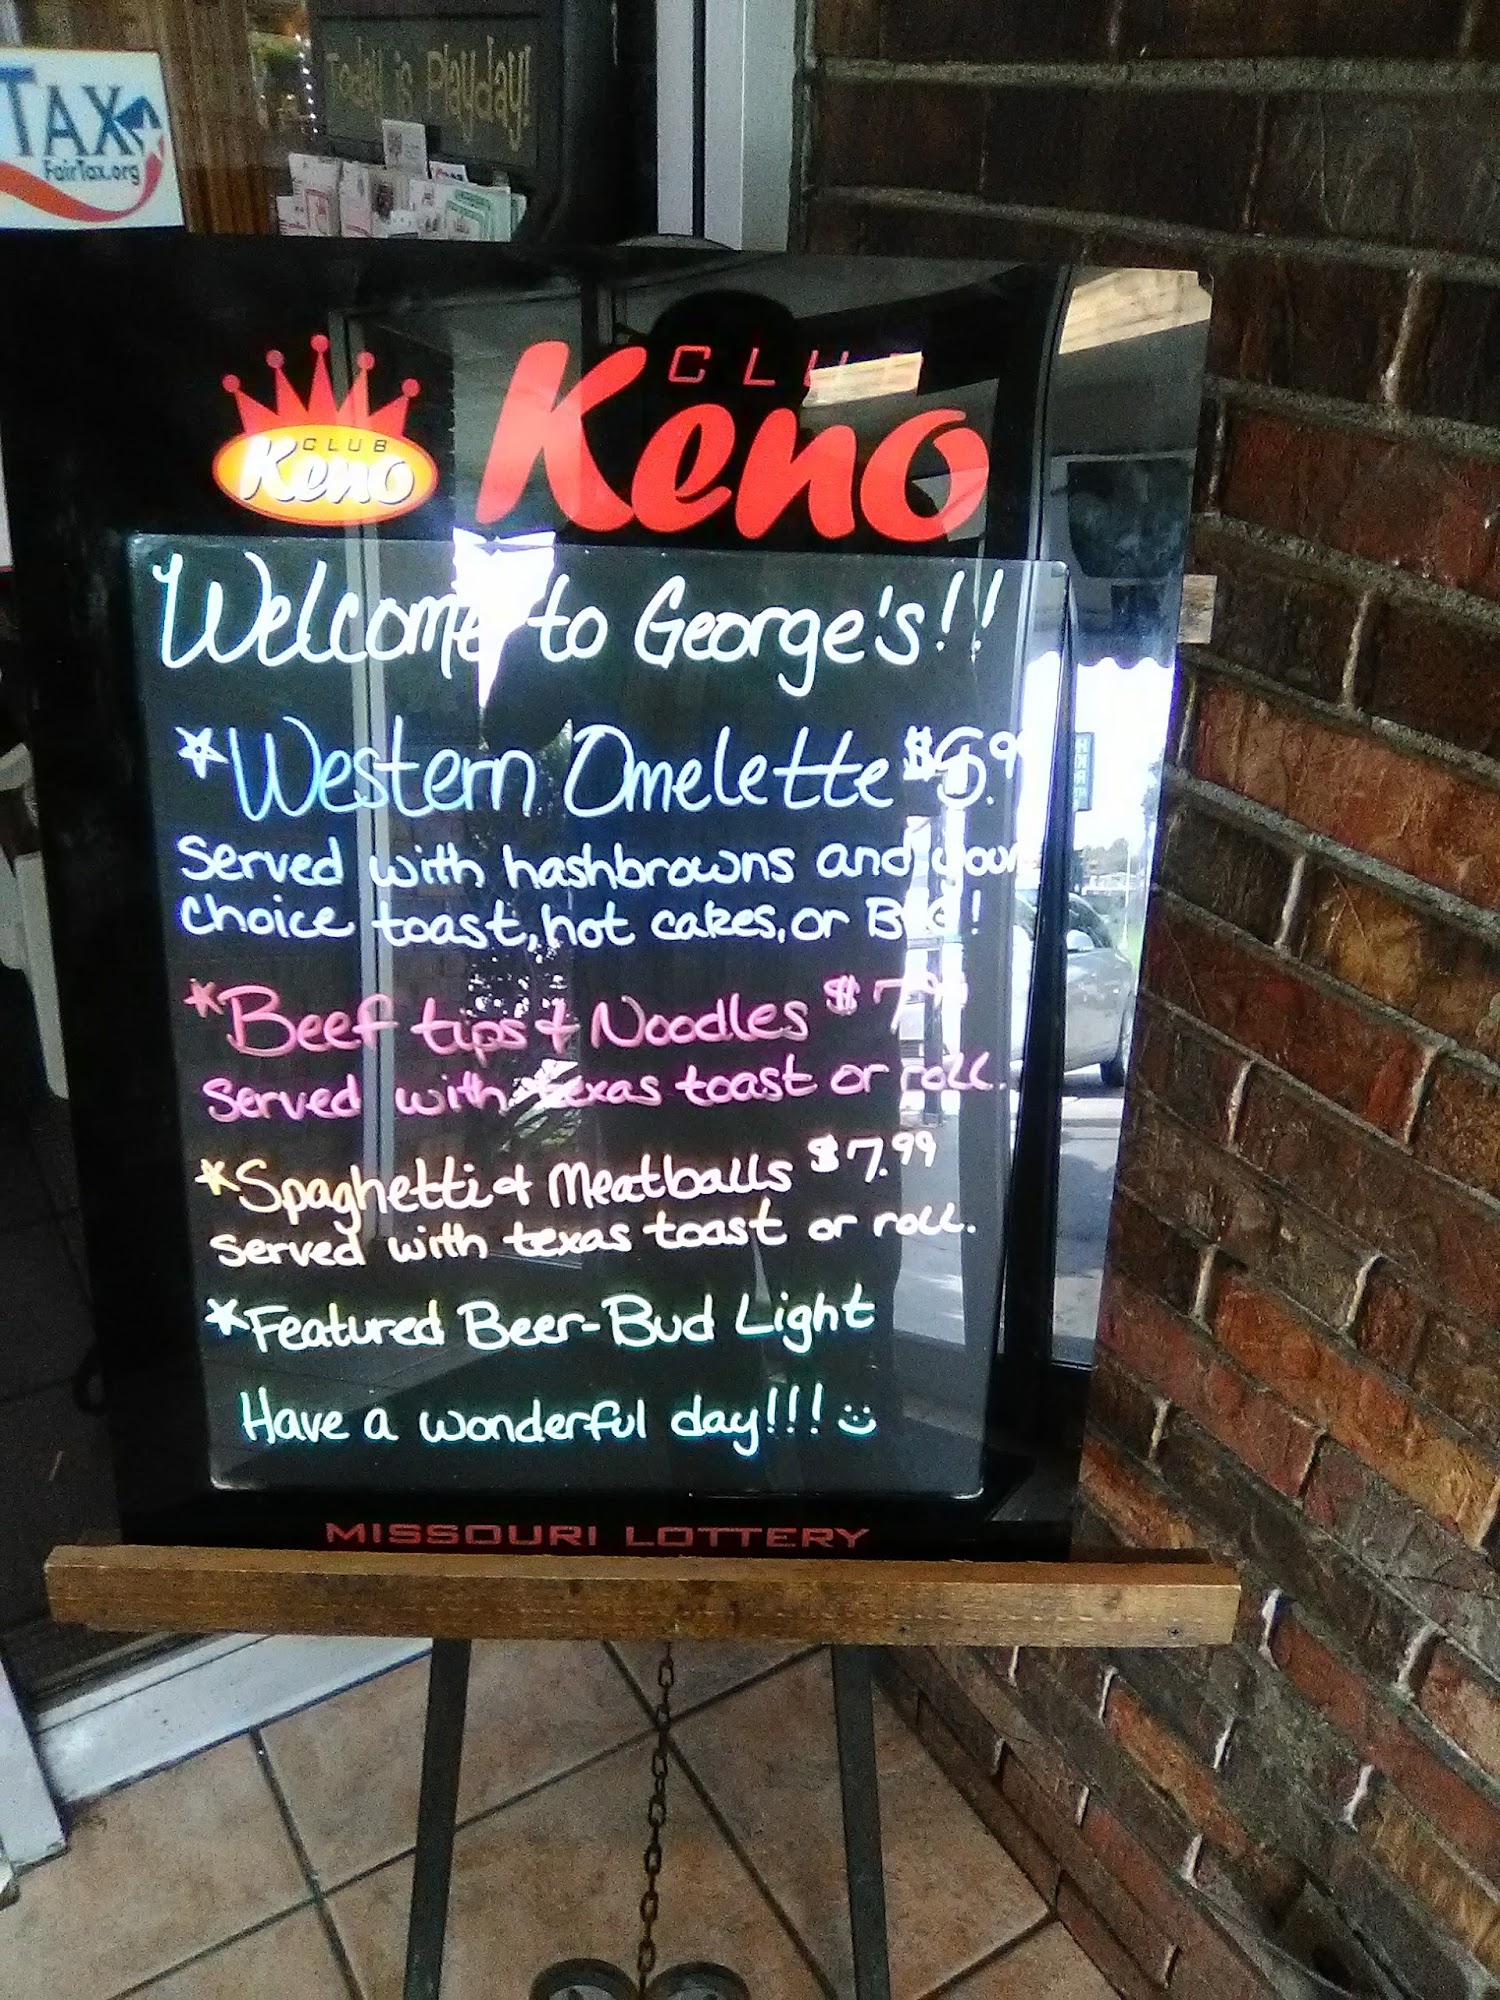 TAX
FairTax.org
Today is Playday!
CLUB
Keno
CLUB
Keno
Welcome to George's!!
*Western Omelette $6.99
served with hashbrowns and your
choice toast, hot cakes, or B&G!
*Beef tips & Noodles $7.99
served with texas toast or roll.
*Spaghetti & Meatballs $7.99
served with texas toast or roll.
*Featured Beer-Bud Light
Have a wonderful day!!!
MISSOURI LOTTERY